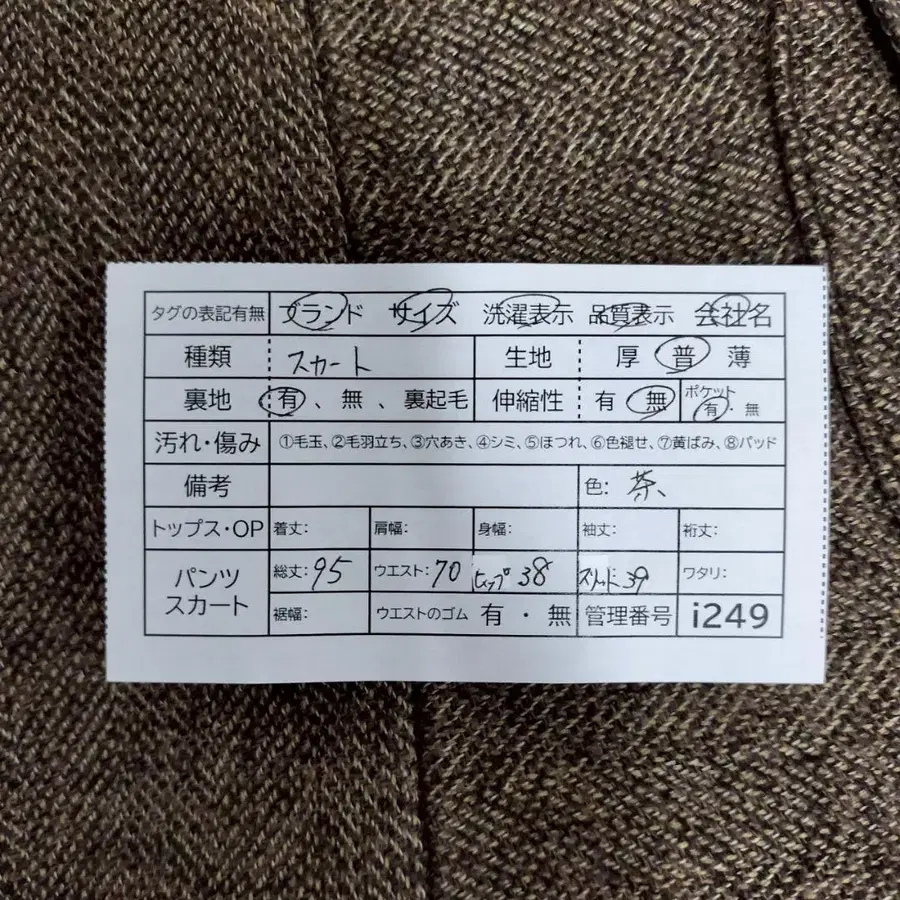 タグの表記有無 ブランド サイズ 洗濯表示 品質表示 会社名
種類 スカート 生地 厚 普 薄
裏地 有、無、裏起毛 伸縮性 有 無 ポケット 有・無
汚れ・傷み ①毛玉、②毛羽立ち、③穴あき、④シミ、⑤ほつれ、⑥色褪せ、⑦黄ばみ、⑧パッド
備考 色: 茶、
トップス・OP 着丈: 肩幅: 身幅: 袖丈: 裄丈:
パンツ スカート 総丈: 95 ウエスト: 70 ヒップ 38 スリット 39 ワタリ:
裾幅: ウエストのゴム 有・無 管理番号 i249